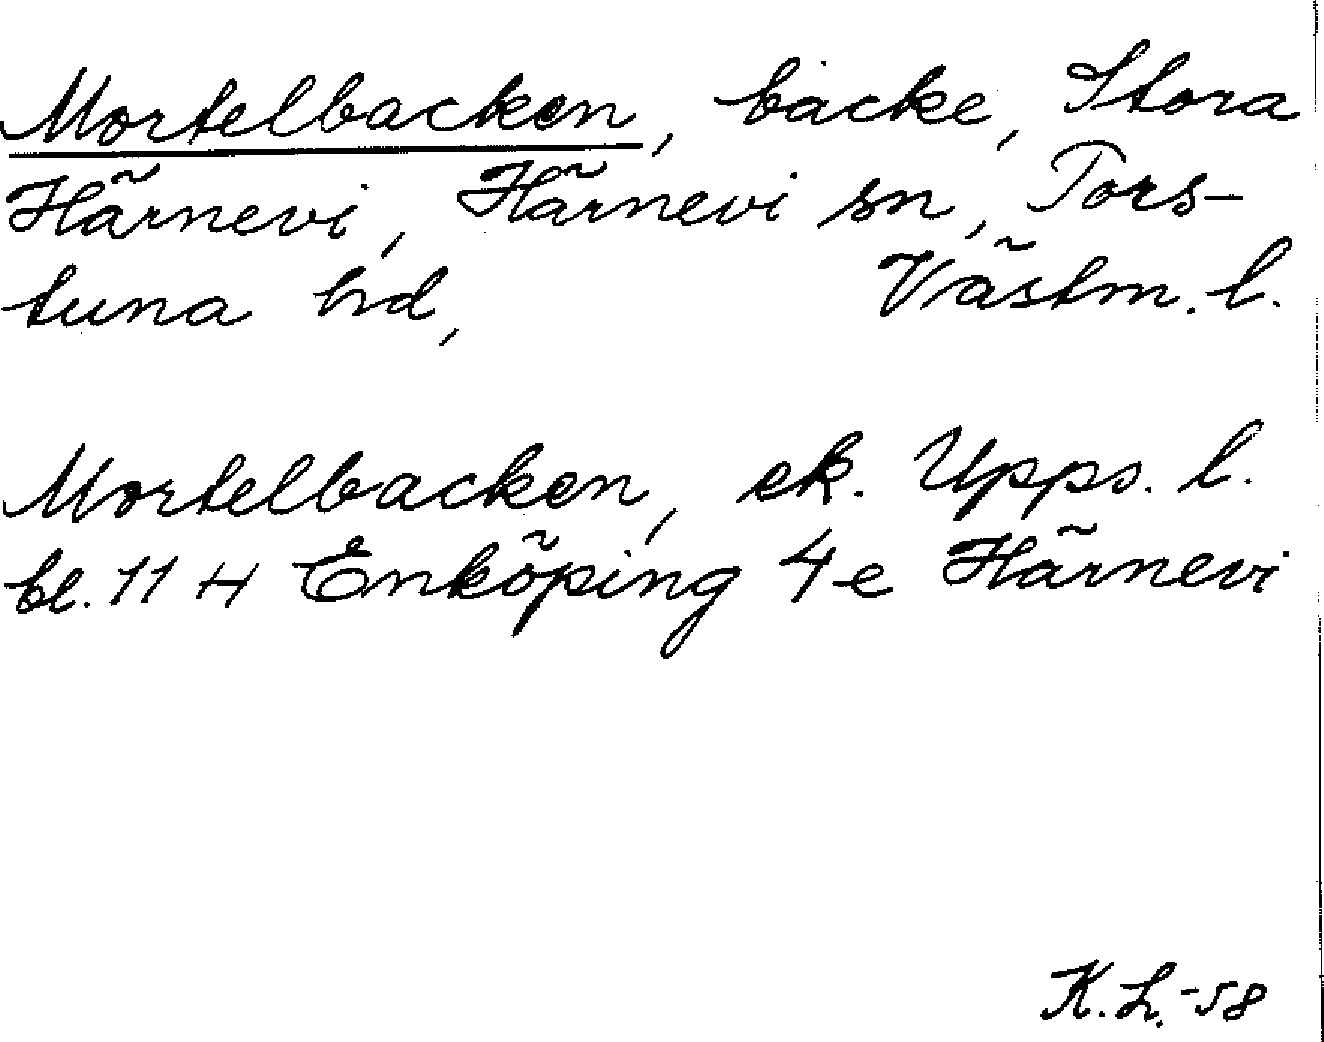 Mortelbacken, backe, Stora
Härnevi, Härnevi sn, Tors-
tuna hd, Västm. l.
Mortelbacken, ek. Upps. l.
bl. 11 H Enköping 4 e Härnevi
K. L. -58